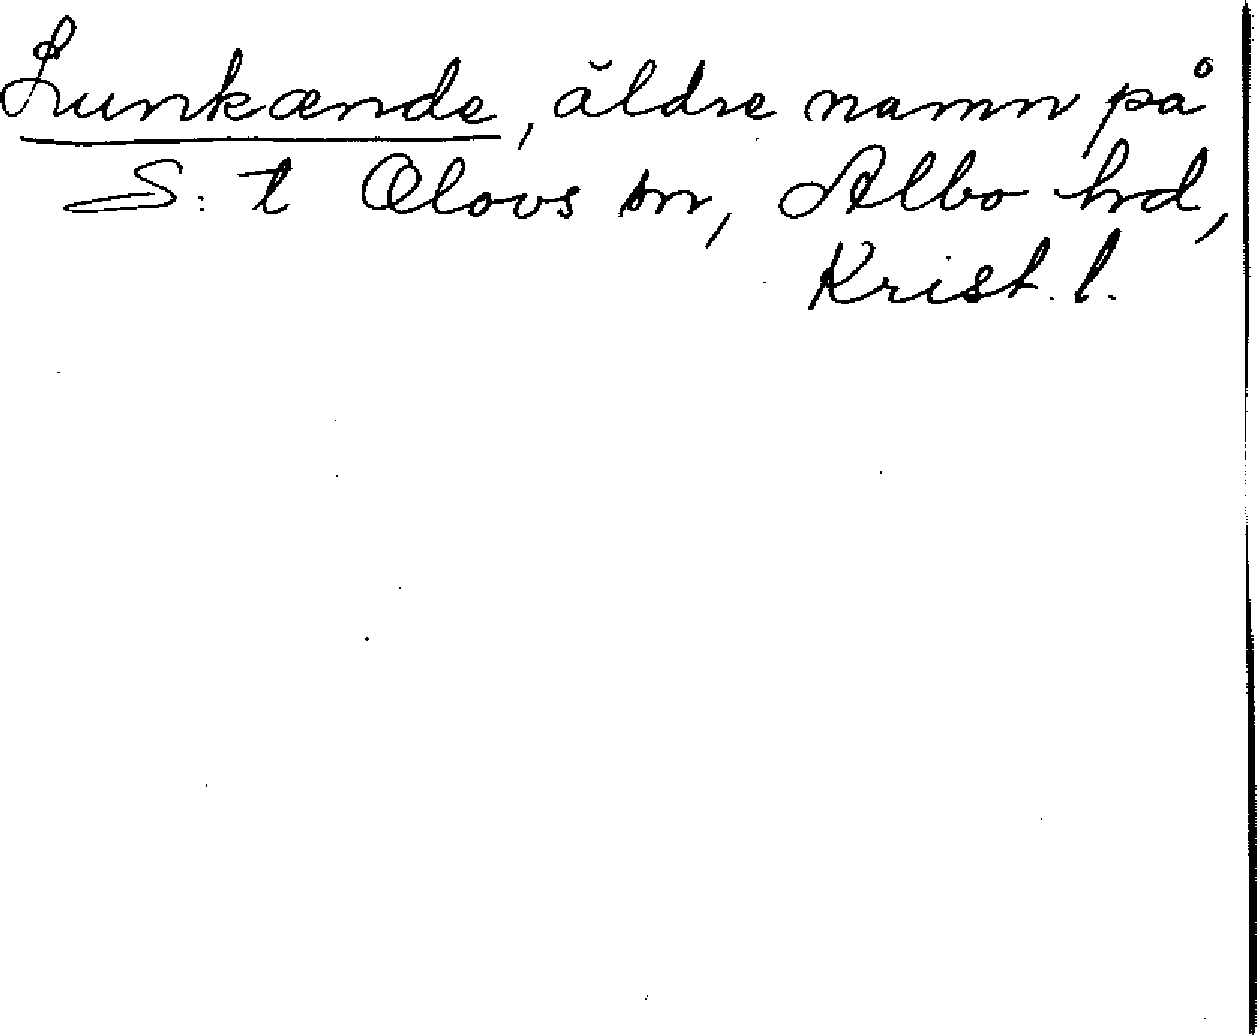 Lunkænde, äldre namn på
S:t Olovs sn, Albo hd,
Krist. l.